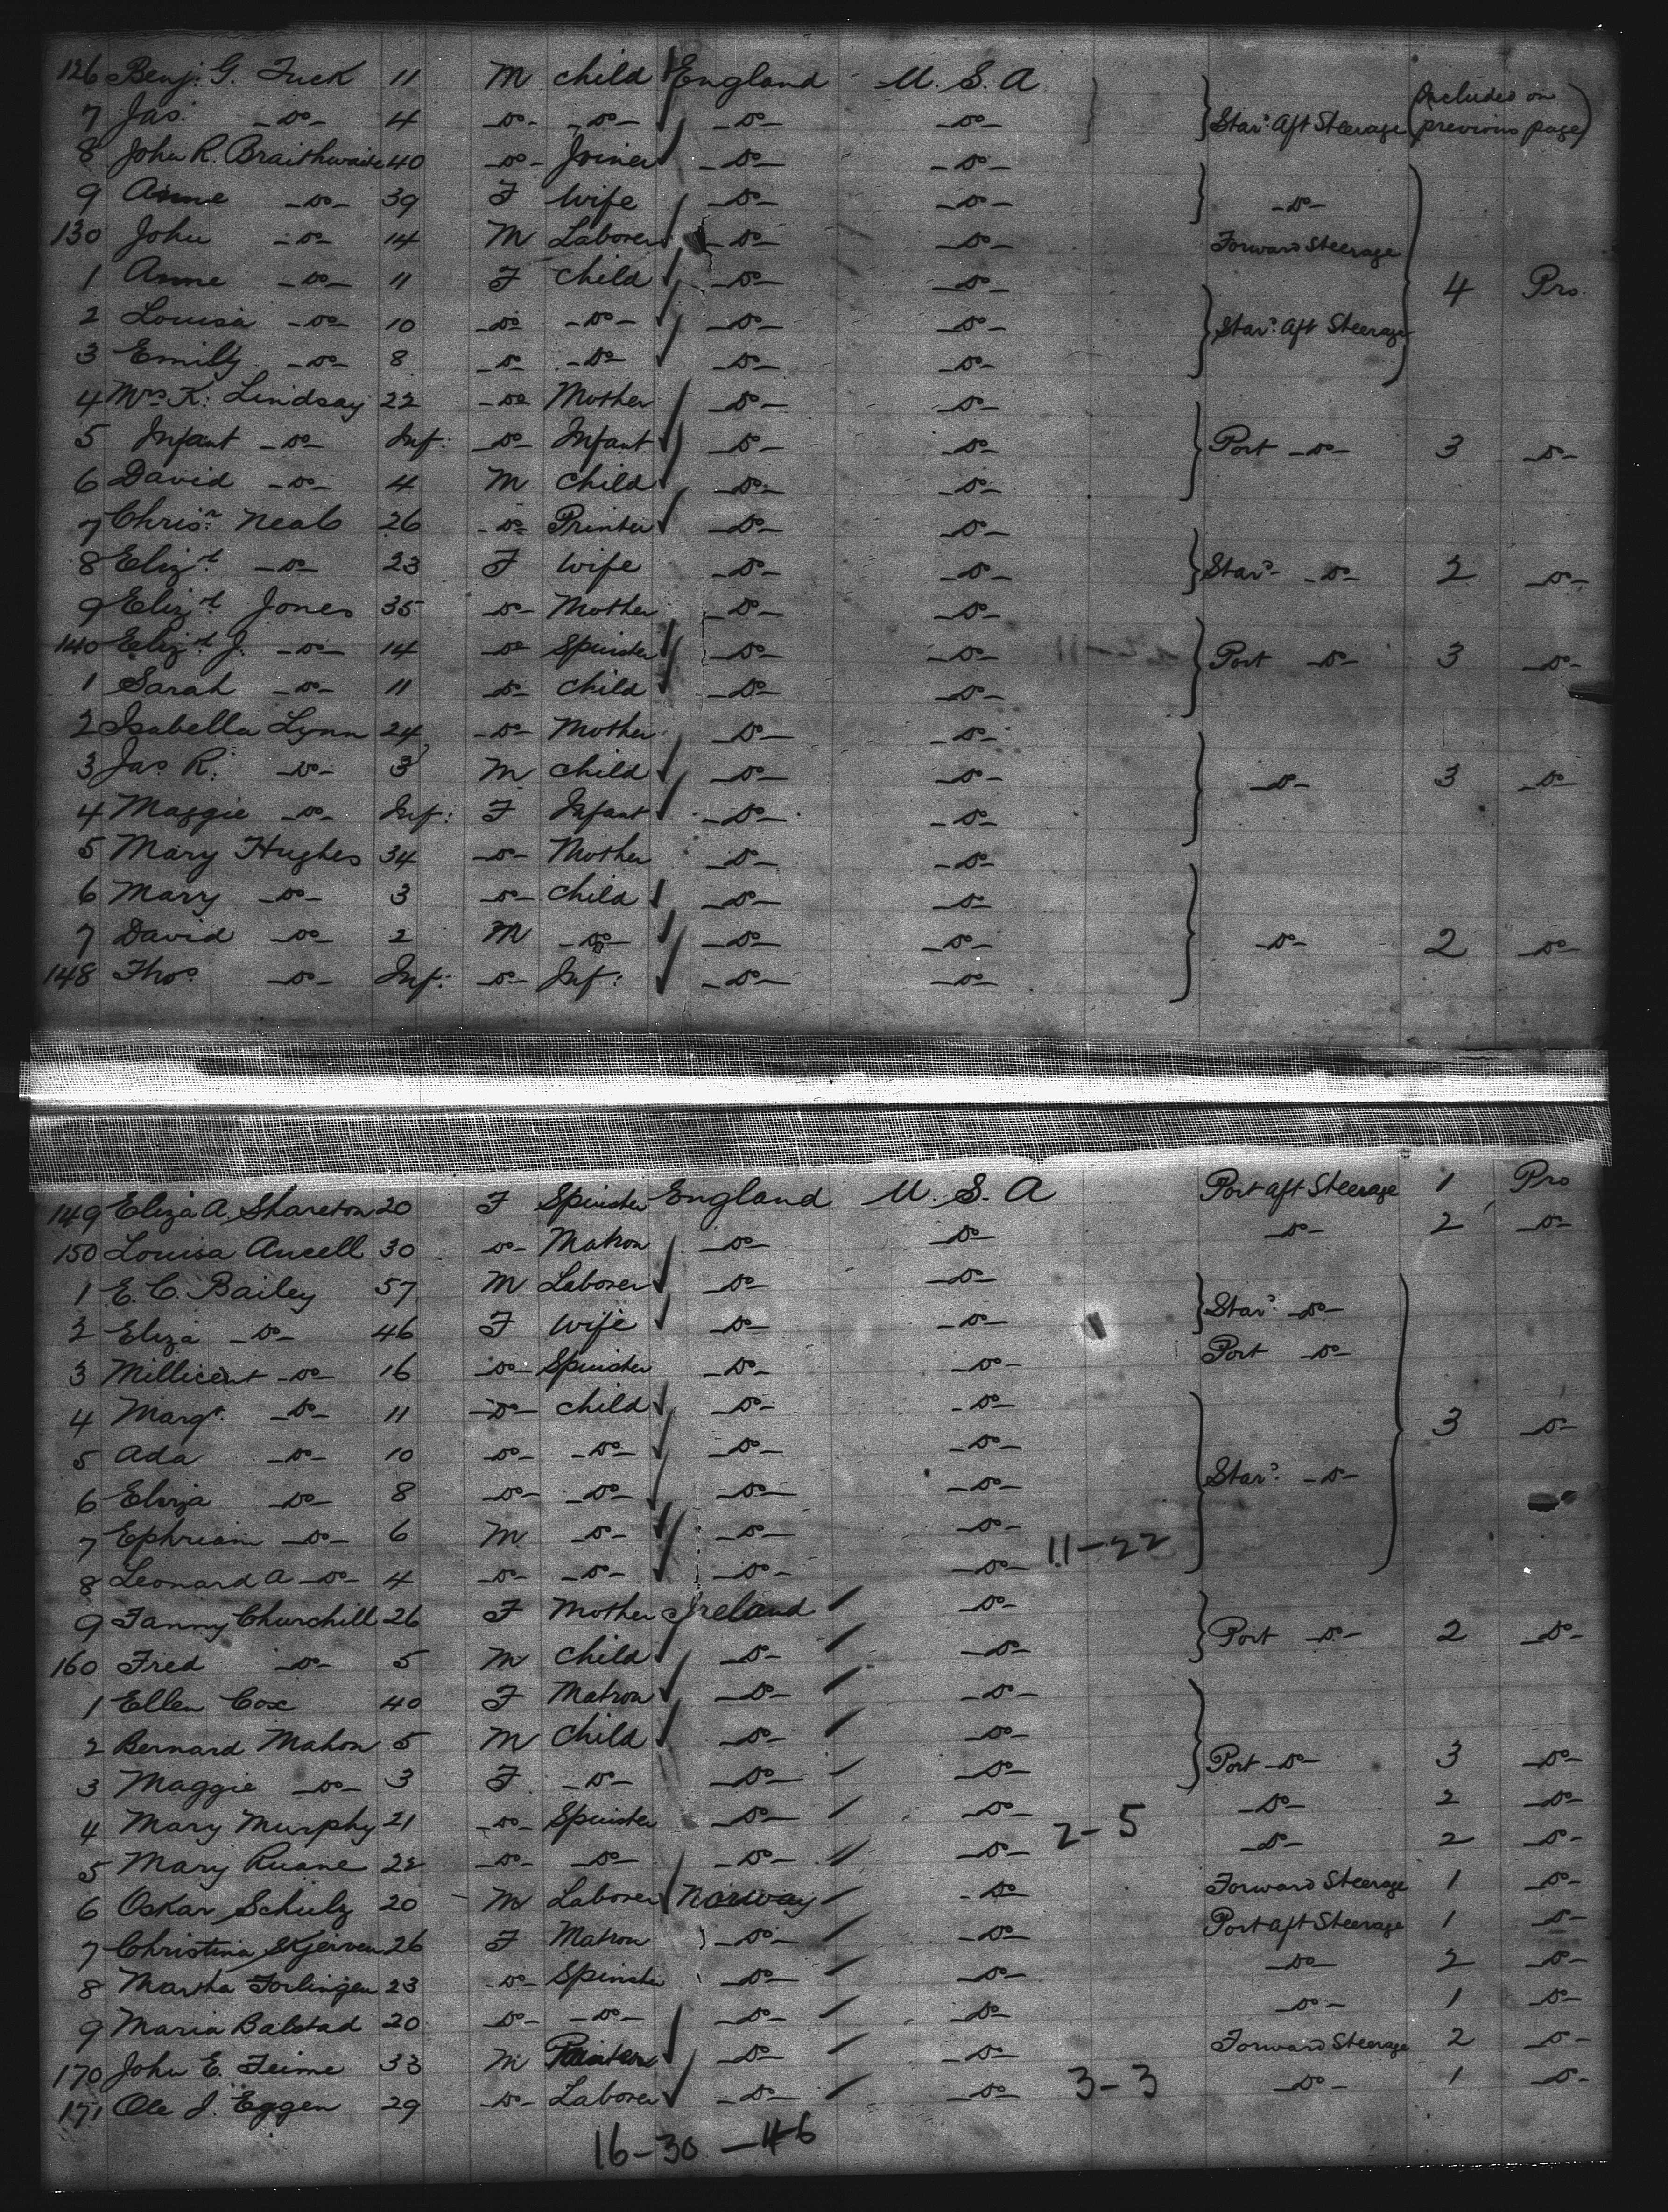 126 Benj. G. Tuck 11 M child England U.S.A (Included on
7 Jas. -do- 4 -do- -do- -do- -do- Star: Aft Steerage previous page)
8 John R. Braithwaite 40 -do- Joiner -do- -do-
9 Anne -do- 39 F Wife -do- -do- -do-
130 John -do- 14 M Laborer -do- -do- Forward Steerage
1 Anne -do- 11 F Child -do- -do- 4 Pro.
2 Louisa -do- 10 -do- -do- -do- -do- Star: Aft Steerage
3 Emily -do- 8 -do- -do- -do- -do-
4 Mrs K. Lindsay 22 -do- Mother -do- -do-
5 Infant -do- Inf: -do- Infant -do- -do- Port -do- 3 -do-
6 David -do- 4 M Child -do- -do-
7 Chrisr. Neal 26 -do- Printer -do- -do-
8 Elizt. -do- 23 F Wife -do- -do- Star: -do- 2 -do-
9 Elizt. Jones 35 -do- Mother -do- -do-
140 Elizt. J. -do- 14 -do- Spinster -do- -do- Port -do- 3 -do-
1 Sarah -do- 11 -do- Child -do- -do-
2 Isabella Lynn 24 -do- Mother -do- -do-
3 Jas R. -do- 3 M Child -do- -do- -do- 3 -do-
4 Maggie -do- Inf: F Infant -do- -do-
5 Mary Hughes 34 -do- Mother -do- -do-
6 Mary -do- 3 -do- Child -do- -do-
7 David -do- 2 M -do- -do- -do- -do- 2 -do-
148 Thos -do- Inf: -do- Inf: -do- -do-
149 Eliza A. Shareton 20 F Spinster England U.S.A Port aft Steerage 1 Pro
150 Louisa Ancell 30 -do- Matron -do- -do- -do- 2 -do-
1 E. C. Bailey 57 M Laborer -do- -do- Star: -do-
2 Eliza -do- 46 F Wife -do- -do-
3 Millicent -do- 16 -do- Spinster -do- -do- Port -do-
4 Margt. -do- 11 -do- Child -do- -do- 3 -do-
5 Ada -do- 10 -do- -do- -do- -do- Star: -do-
6 Eliza -do- 8 -do- -do- -do- -do-
7 Ephriam -do- 6 M -do- -do- -do- 11-22
8 Leonard A -do- 4 -do- -do- -do- -do-
9 Fanny Churchill 26 F Mother Ireland -do- Port -do- 2 -do-
160 Fred -do- 5 M Child -do- -do-
1 Ellen Cox 40 F Matron -do- -do-
2 Bernard Mahon 5 M Child -do- -do- Port -do- 3 -do-
3 Maggie -do- 3 F -do- -do- -do-
4 Mary Murphy 21 -do- Spinster -do- -do- 2-5 -do- 2 -do-
5 Mary Ruane 22 -do- -do- -do- -do- -do- 2 -do-
6 Oskar Schulz 20 M Laborer Norway -do- Forward Steerage 1 -do-
7 Christina Skjerven 26 F Matron -do- -do- Port aft Steerage 1 -do-
8 Martha Forlingen 23 -do- Spinster -do- -do- -do- 2 -do-
9 Maria Balstad 20 -do- -do- -do- -do- -do- 1 -do-
170 John E. Feime 33 M Painter -do- -do- Forward Steerage 2 -do-
171 Ole J. Eggen 29 -do- Laborer -do- -do- 3-3 -do- 1 -do-
16-30-46